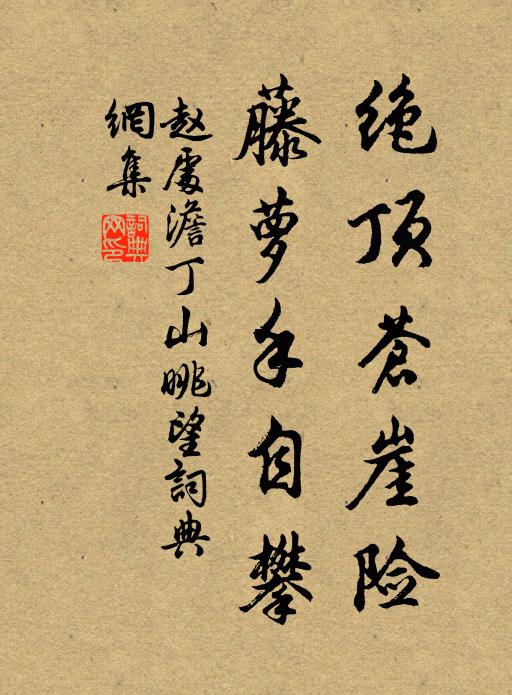 绝顶苍崖险
藤萝手自攀
赵处澹丁山眺望詞典
網集
詞典
网印